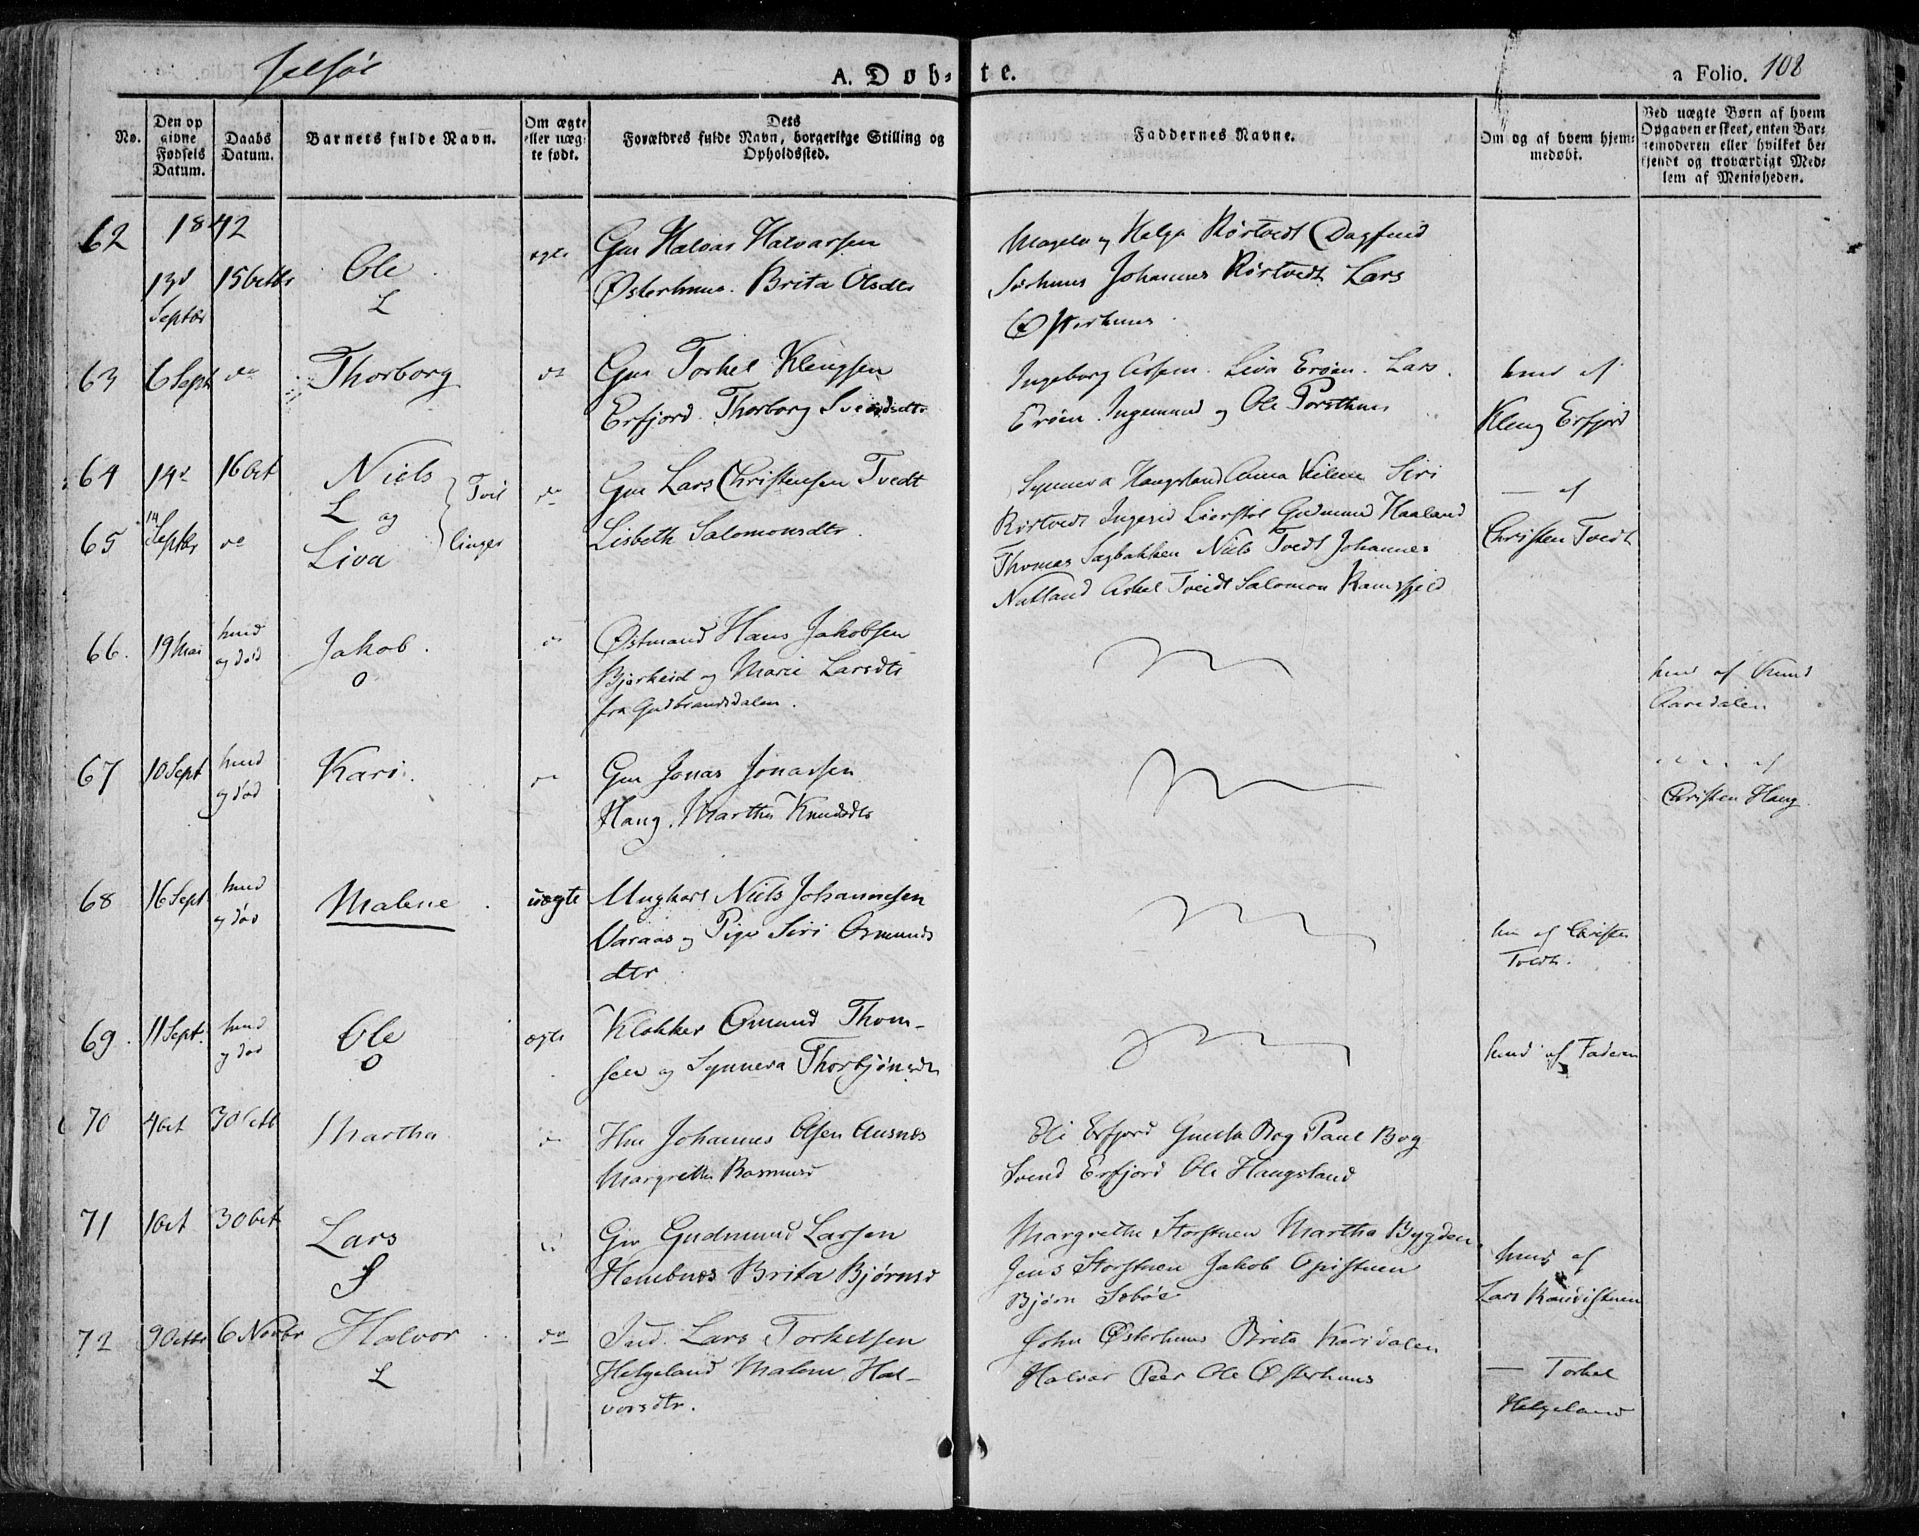 Jelsøe
A. Døb-te.
a Folio. 108
No.
Den op
givne
Fødsels
Datum.
Daabs
Datum.
Barnets fulde Navn.
Om ægte
eller uæg-
te født.
Dets
Forældres fulde Navn, borgerlige Stilling og
Opholdssted.
Faddernes Navne.
Om og af hvem hjem-
medøbt.
Ved uægte Børn af hvem
Opgaven er skeet, enten Bar-
nemoderen eller hvilket be-
kjendt og troværdigt Med-
lem af Menigheden.
1842
62
13d
Septbr
15 octbr
Ole
L
ægte
Gm Halvar Halvarsen
Østerhuus. Brita Olsdtr
Helga Rørtvedt Dagfind
Johannes Rørtvedt Lars
Østerhuus
63
6 Sept
do
Thorborg
do
Gm Torkel Klengsen
Erfjord. Thorborg Svendsdtr
Ingeborg Liva Erøen. Lars
Erøen Ingemund og Ole
hmd af
Kleng Erfjord
64
14d
16 oct
Niels
L
og
Tvil
do
Gm Lars Christensen Tvedt
Lisbeth Salomonsdtr
65
14 Septbr
do
Liva
linger
Synneva Haugsland Anna Siri
Rørtvedt Ingerid Gudmund Haaland
Thomas Sagbakken Niels Tvedt Johannes
Natland Askel Tveidt Salomon Ramsfjeld
— af
Christen Tvedt
66.
19 Mai
hmd
og død
Jakob.
O
do
Østmand Hans Jakobsen
Bjørkeid og Marie Larsdtr
fra Gudbrandsdalen.
hmd af Knud
67
10 Sept
hmd
og død
Kari.
do
Gm Jonas Jonassen
Haug. Martha Knudsdtr
af
Christen Haug
68
16 Sept
hmd
og død
Malene
uægte
Ungkarl Niels Johannesen
Varaas og Pige Siri Osmunds
dtr
hm af Christen
Tvedt.
69.
11 Sept.
hmd
og død
Ole
O
ægte
Klokker Omund Thom-
sen og Synneva Thorbjønsdtr
hmd af Faderen
70
4 oct
30 octb
Martha
do
Hm Johannes Olsen Ausnes
Margrethe Rasmusd
Eli Erfjord Bog Paul Bog
Svend Erfjord Ole Haugsland
71
1 oct
30 oct
Lars
S
Gm Gudmund Larsen
Hembnes Brita Bjørnsd
Margrethe Storstuen Martha Bygden
Jens Storstuen Jakob Opistuen
Bjørn Sebøe
hmd af
Lars
72
9 Octbr
6 Novbr
Halvor
L
do
Ind. Lars Torkelsen
Helgeland Malene Hal-
vorsdtr.
John Østerhuus Brita Karidalen
Halvar Peer Ole Østerhuus
— Torkel
Helgeland